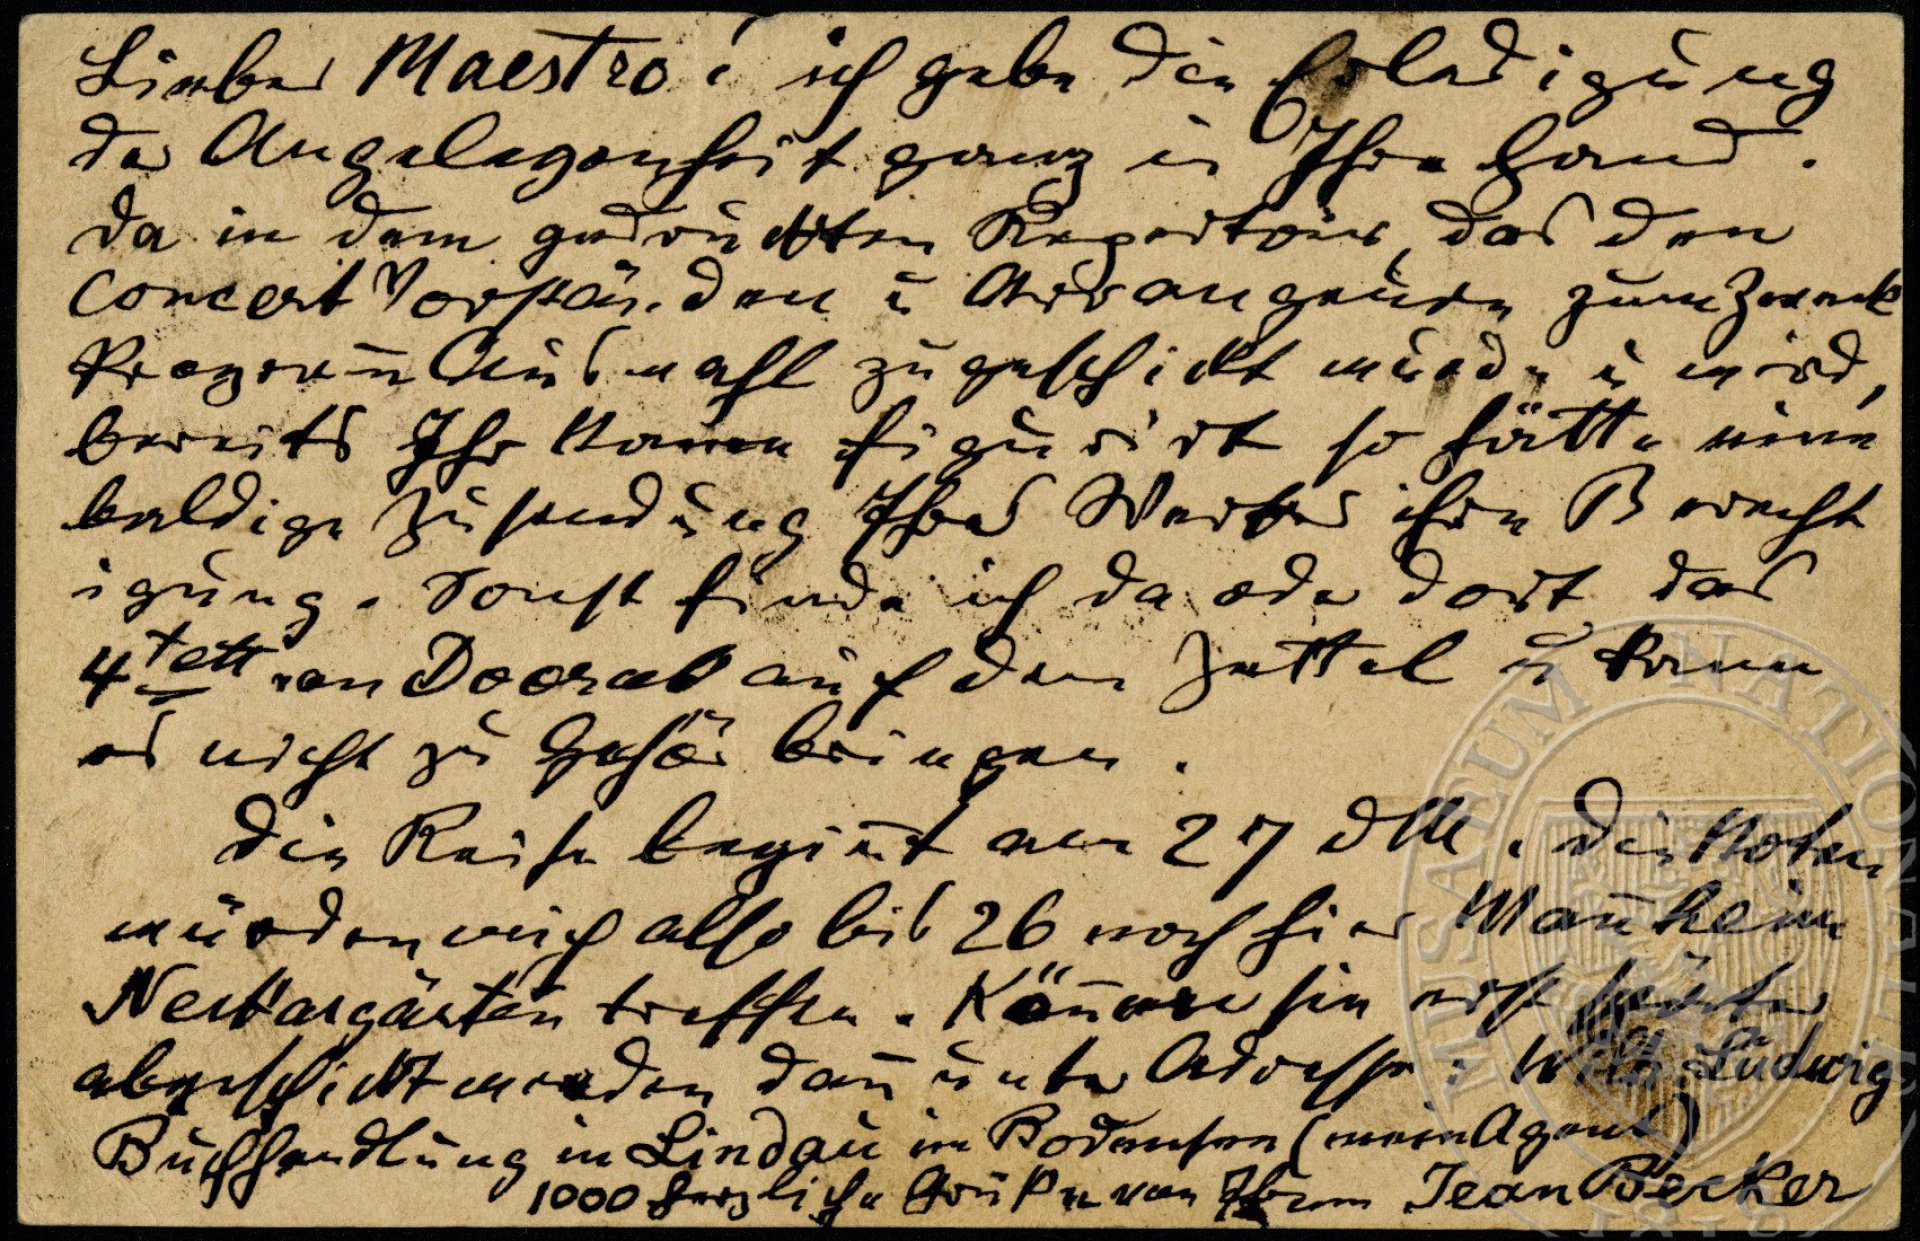 Lieber Maestro! ich gebe die Erledigung
der Angelegenheit ganz in Ihre Hand.
Da in dem gedruckten Repertoir, das den
Concert Vorständen u Arrangeuren zum Zweck
Program Auswahl zugeschickt wurde u wird,
bereits Ihr Namen figurirt so hätte eine
baldige Zusendung Ihres Werkes ihre Berecht
igung. Sonst finde ich da oder dort das
4tett von Dvorak auf dem Zettel u kann
es nicht zu Gehör bringen.
Die Reise beginnt am 27 d M. Die Noten
würden mich also bis 26 noch hier Manheim
Neckargärten treffen. Können sie erst später
abgeschickt werden dann unter Adresse: Wilh Ludwig
Buchhandlung in Lindau im Bodensee (mein Agent)
1000 herzliche Grüße von Ihrem Jean Becker
MUSAEUM NATIONALE
1818